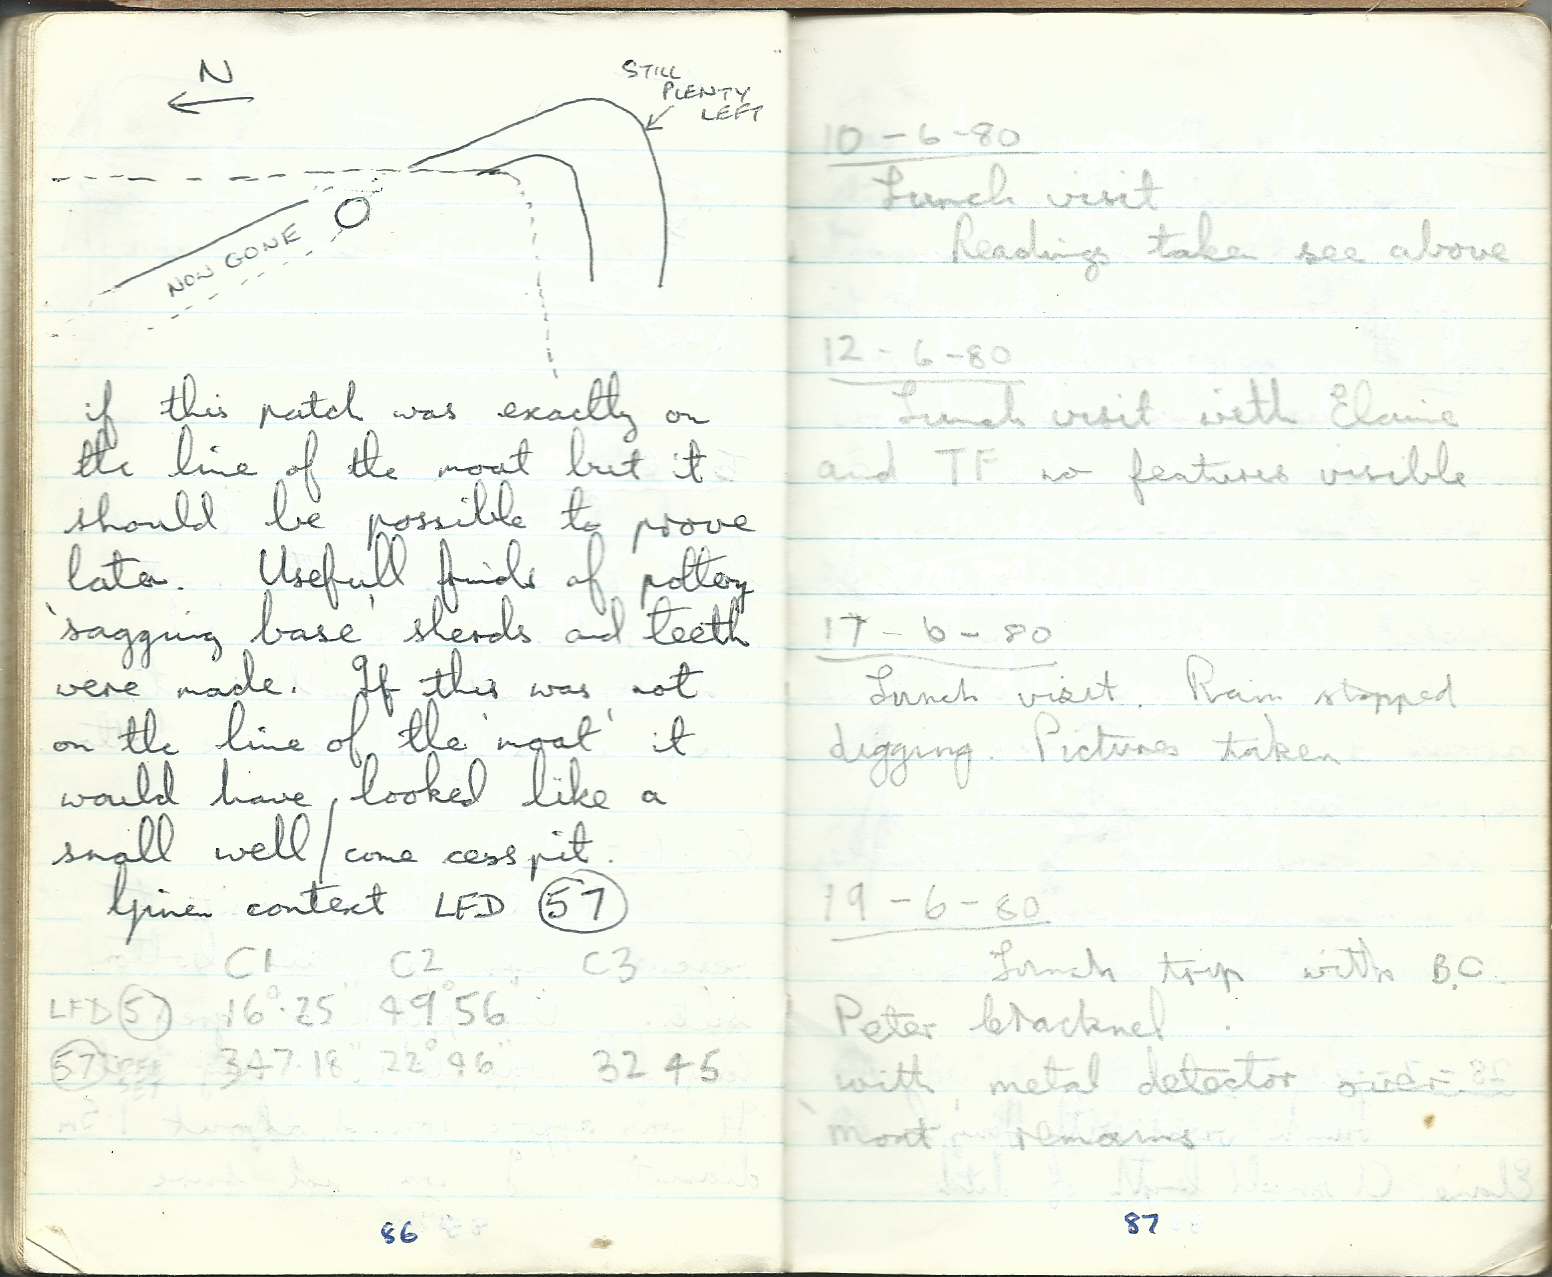 N
STILL
PLENTY
LEFT
NOW GONE
if this patch was exactly on
the line of the moat but it
should be possible to prove
later. Usefull finds of pottery
'sagging base' sherds and teeth
were made. If this was not
on the line of the 'moat' it
would have looked like a
small well/come cess pit.
Given context LFD 57
C1 C2 C3
LFD 57 16°.25" 49°56"
57 347.18" 22°46" 32 45
86
10-6-80
Lunch visit
Readings taken see above
12-6-80
Lunch visit with Elaine
and TF no features visible
17-6-80
Lunch visit. Rain stopped
digging. Pictures taken
19-6-80
Lunch trip with B.C.
Peter
with metal detector over
'moat' remains
87